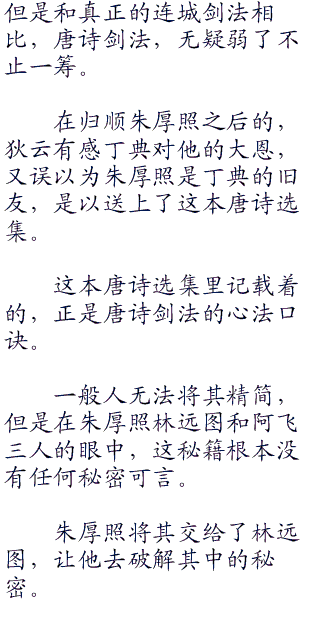 但是和真正的连城剑法相
比，唐诗剑法，无疑弱了不
止一筹。
在归顺朱厚照之后的，
狄云有感丁典对他的大恩，
又误以为朱厚照是丁典的旧
友，是以送上了这本唐诗选
集。
这本唐诗选集里记载着
的，正是唐诗剑法的心法口
诀。
一般人无法将其精简，
但是在朱厚照林远图和阿飞
三人的眼中，这秘籍根本没
有任何秘密可言。
朱厚照将其交给了林远
图，让他去破解其中的秘
密。